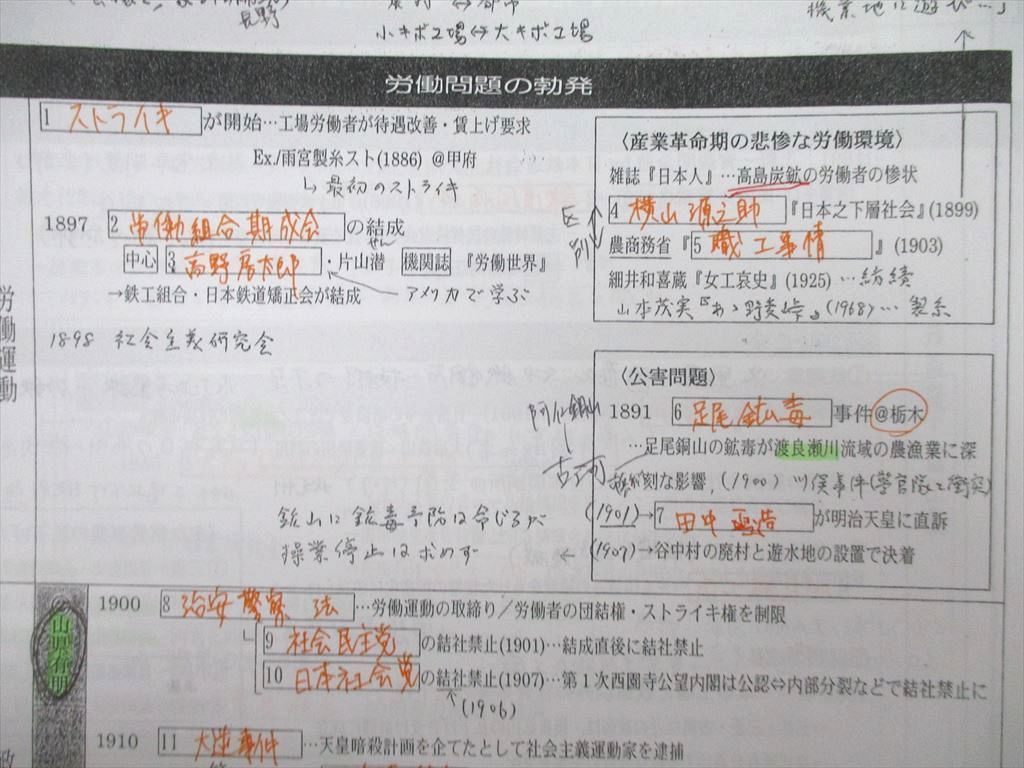 長野
小キボ工場⇔大キボ工場
機業地に遊び…」
労働問題の勃発
1 ストライキ が開始…工場労働者が待遇改善・賃上げ要求
Ex./雨宮製糸スト(1886) @甲府
↳最初のストライキ
1897 2 労働組合期成会 の結成
せん
中心 3 高野房太郎・片山潜 機関誌『労働世界』
→鉄工組合・日本鉄道矯正会が結成
アメリカで学ぶ
1898 社会主義研究会
労働運動
〈産業革命期の悲惨な労働環境〉
雑誌『日本人』…高島炭鉱の労働者の惨状
4 横山源之助『日本之下層社会』(1899)
農商務省『5 職工事情』(1903)
細井和喜蔵『女工哀史』(1925) …紡績
山本茂実『あゝ野麦峠』(1968)…製糸
〈公害問題〉
1891 6 足尾鉱毒 事件@栃木
…足尾銅山の鉱毒が渡良瀬川流域の農漁業に深
刻な影響,(1900) 川俣事件(警官隊と衝突)
(1901)→7 田中正造 が明治天皇に直訴
(1907)→谷中村の廃村と遊水地の設置で決着
阿仁銅山
古河
鉱山に鉱毒予防は命じるが
操業停止は求めず ←
山県有朋
1900 8 治安警察法 …労働運動の取締り／労働者の団結権・ストライキ権を制限
9 社会民主党 の結社禁止(1901)…結成直後に結社禁止
10 日本社会党 の結社禁止(1907)…第1次西園寺公望内閣は公認⇔内部分裂などで結社禁止に
(1906)
1910 11 大逆事件 …天皇暗殺計画を企てたとして社会主義運動家を逮捕